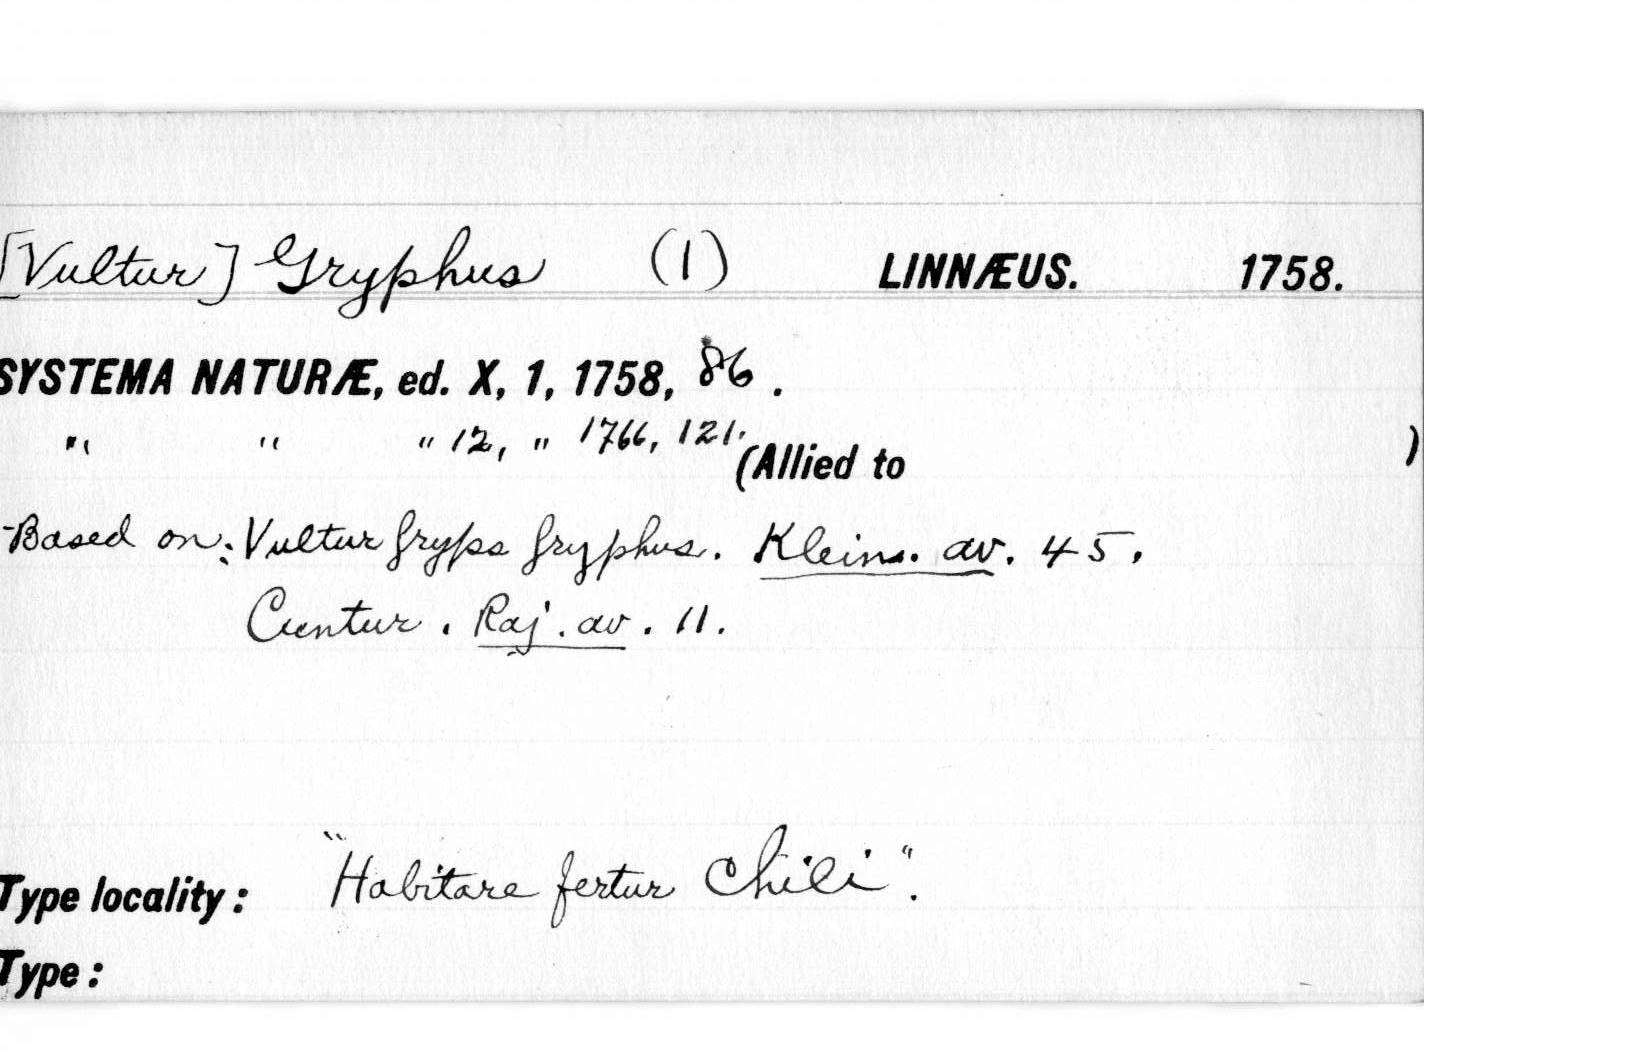 [Vultur] Gryphus (1) LINNÆUS. 1758.
SYSTEMA NATURÆ, ed. X, 1, 1758, 86.
" " " 12, " 1766, 121.
(Allied to )
Based on: Vultur gryps gryphus. Klein. av. 45.
Cuntur. Raj. av. 11.
Type locality: "Habitare fertur Chili".
Type: